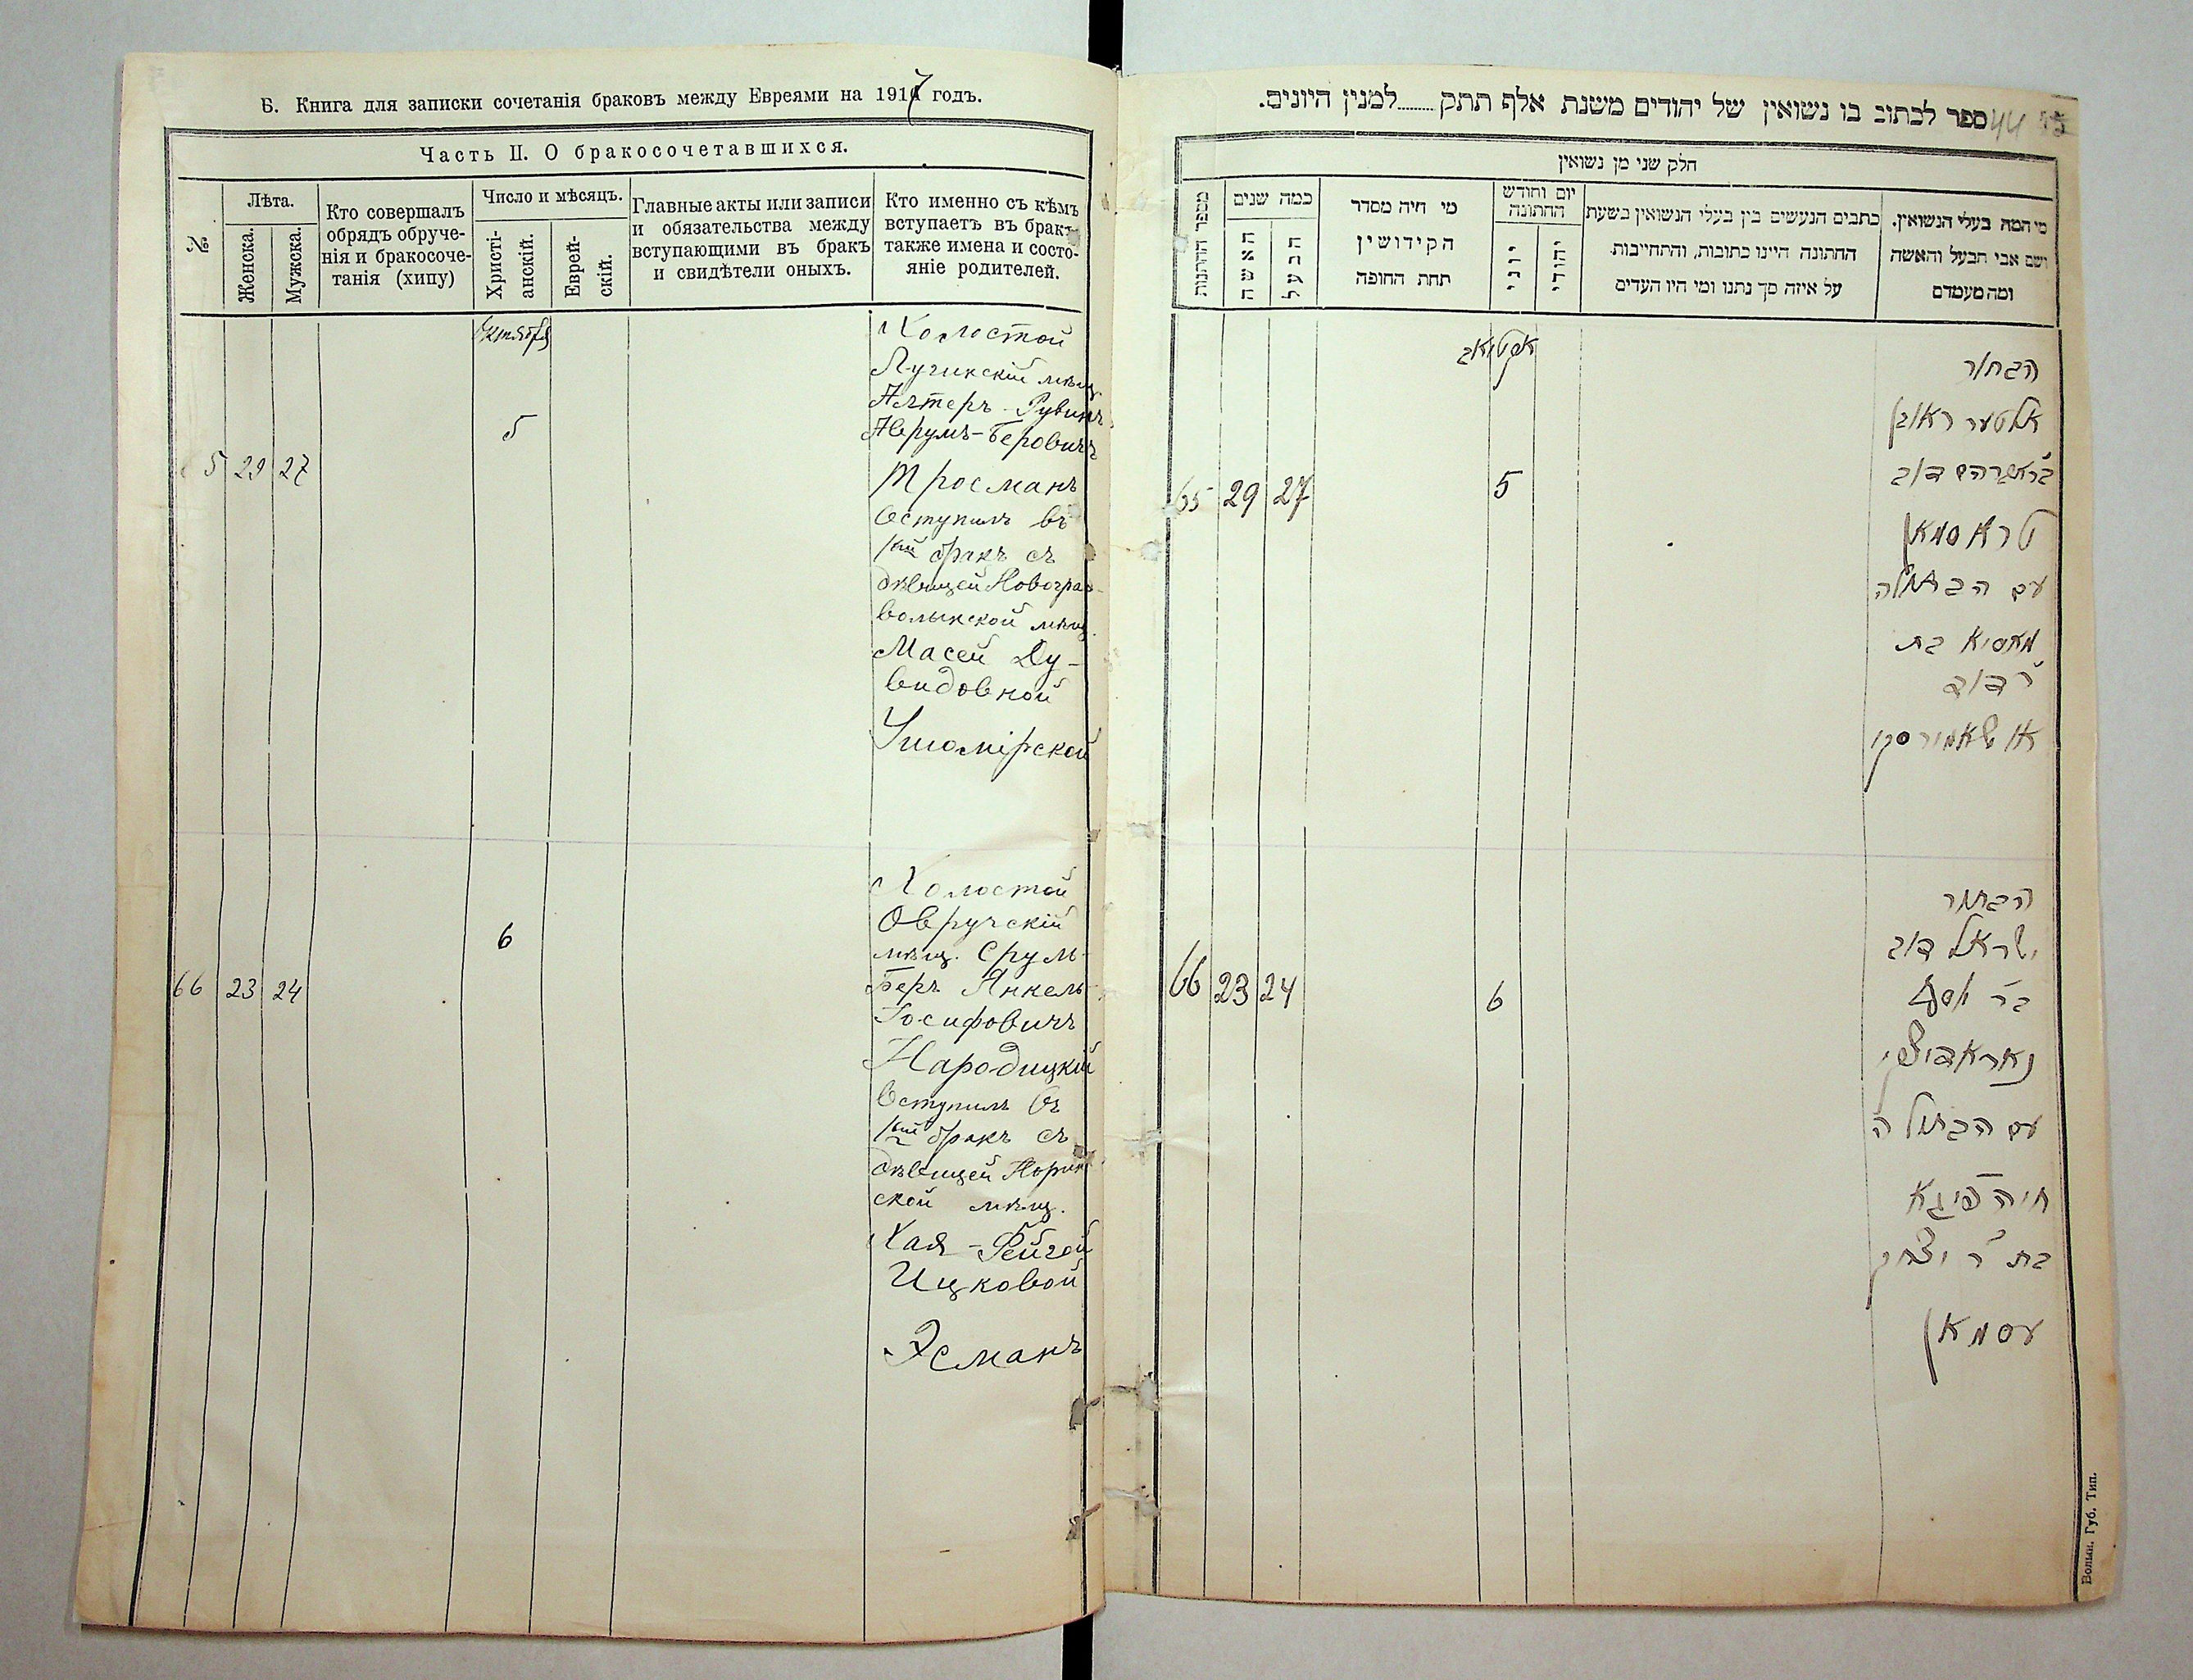 Б. Книга для записки сочетанія браковъ между Евреями на 1917 годъ.
Часть II. О бракосочетавшихся.
№
Лѣта.
Женска.
Мужска.
Кто совершалъ
обрядъ обруче-
нія и бракосоче-
танія (хипу)
Число и мѣсяцъ.
Христі-
анскій.
Еврей-
скій.
Главные акты или записи
и обязательства между
вступающими въ бракъ
и свидѣтели оныхъ.
Кто именно съ кѣмъ
вступаетъ въ бракъ
также имена и состо-
яніе родителей.
Октября
5 29 27
5
Холостой
Лугинскій мѣщ.
Алтеръ-Рувинъ
Аврумъ-Беровичъ
Тросманъ
вступилъ въ
1ый бракъ съ
дѣвицей Новоград-
волынской мѣщ.
Масей Ду-
видовной
Ушомірской
66 23 24
6
Холостой
Овручскій
мѣщ. Сруль-
Беръ Янкель-
Іосифовичъ
Народицкій
вступилъ въ
1ый бракъ съ
дѣвицей Норин
ской мѣщ.
Хая-Фейгой
Ицковой
Эсманъ
ספר לכתוב בו נשואין של יהודים משנת אלף תתק........למנין היונים.
44
חלק שני מן נשואין
מספר החתנות
כמה שנים
האשה
הבעל
מי היה מסדר
הקידושין
תחת החופה
יום וחודש
החתונה
יוני
יהודי
כתבים הנעשים בין בעלי הנשואין בשעת
החתונה היינו כתובות, והתחייבות
על איזה סך נתנו ומי היו העדים
מי המה בעלי הנשואין.
ושם אבי הבעל והאשה
ומה מעמדם
אקטיאב
65 29 27
5
הבחור
אלטער ראובן
בר אברהם דוב
טראסמאן
עם הבתולה
מאסיא בת
ר דוד
אושאמירסקי
66 23 24
6
הבחור
ישראל דוב
בר יוסף
נאראדיצקי
עם הבתולה
חיה פיגא
בת ר יצחק
עסמאן
Волын. Губ. Тип.